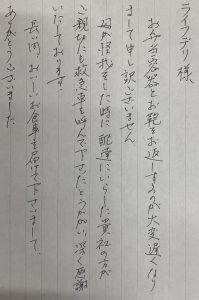 ライフデリ 様
お弁当容器とお鞄をお返しするのが大変遅くなり
まして申し訳ございません。
母が怪我をした時に配達にいらした貴社の方が
ご親切にも救急車を呼んで下さったとうかがい、深く感謝
いたしております。
長い間、おいしいお食事を届けて下さいまして、
ありがとうございました